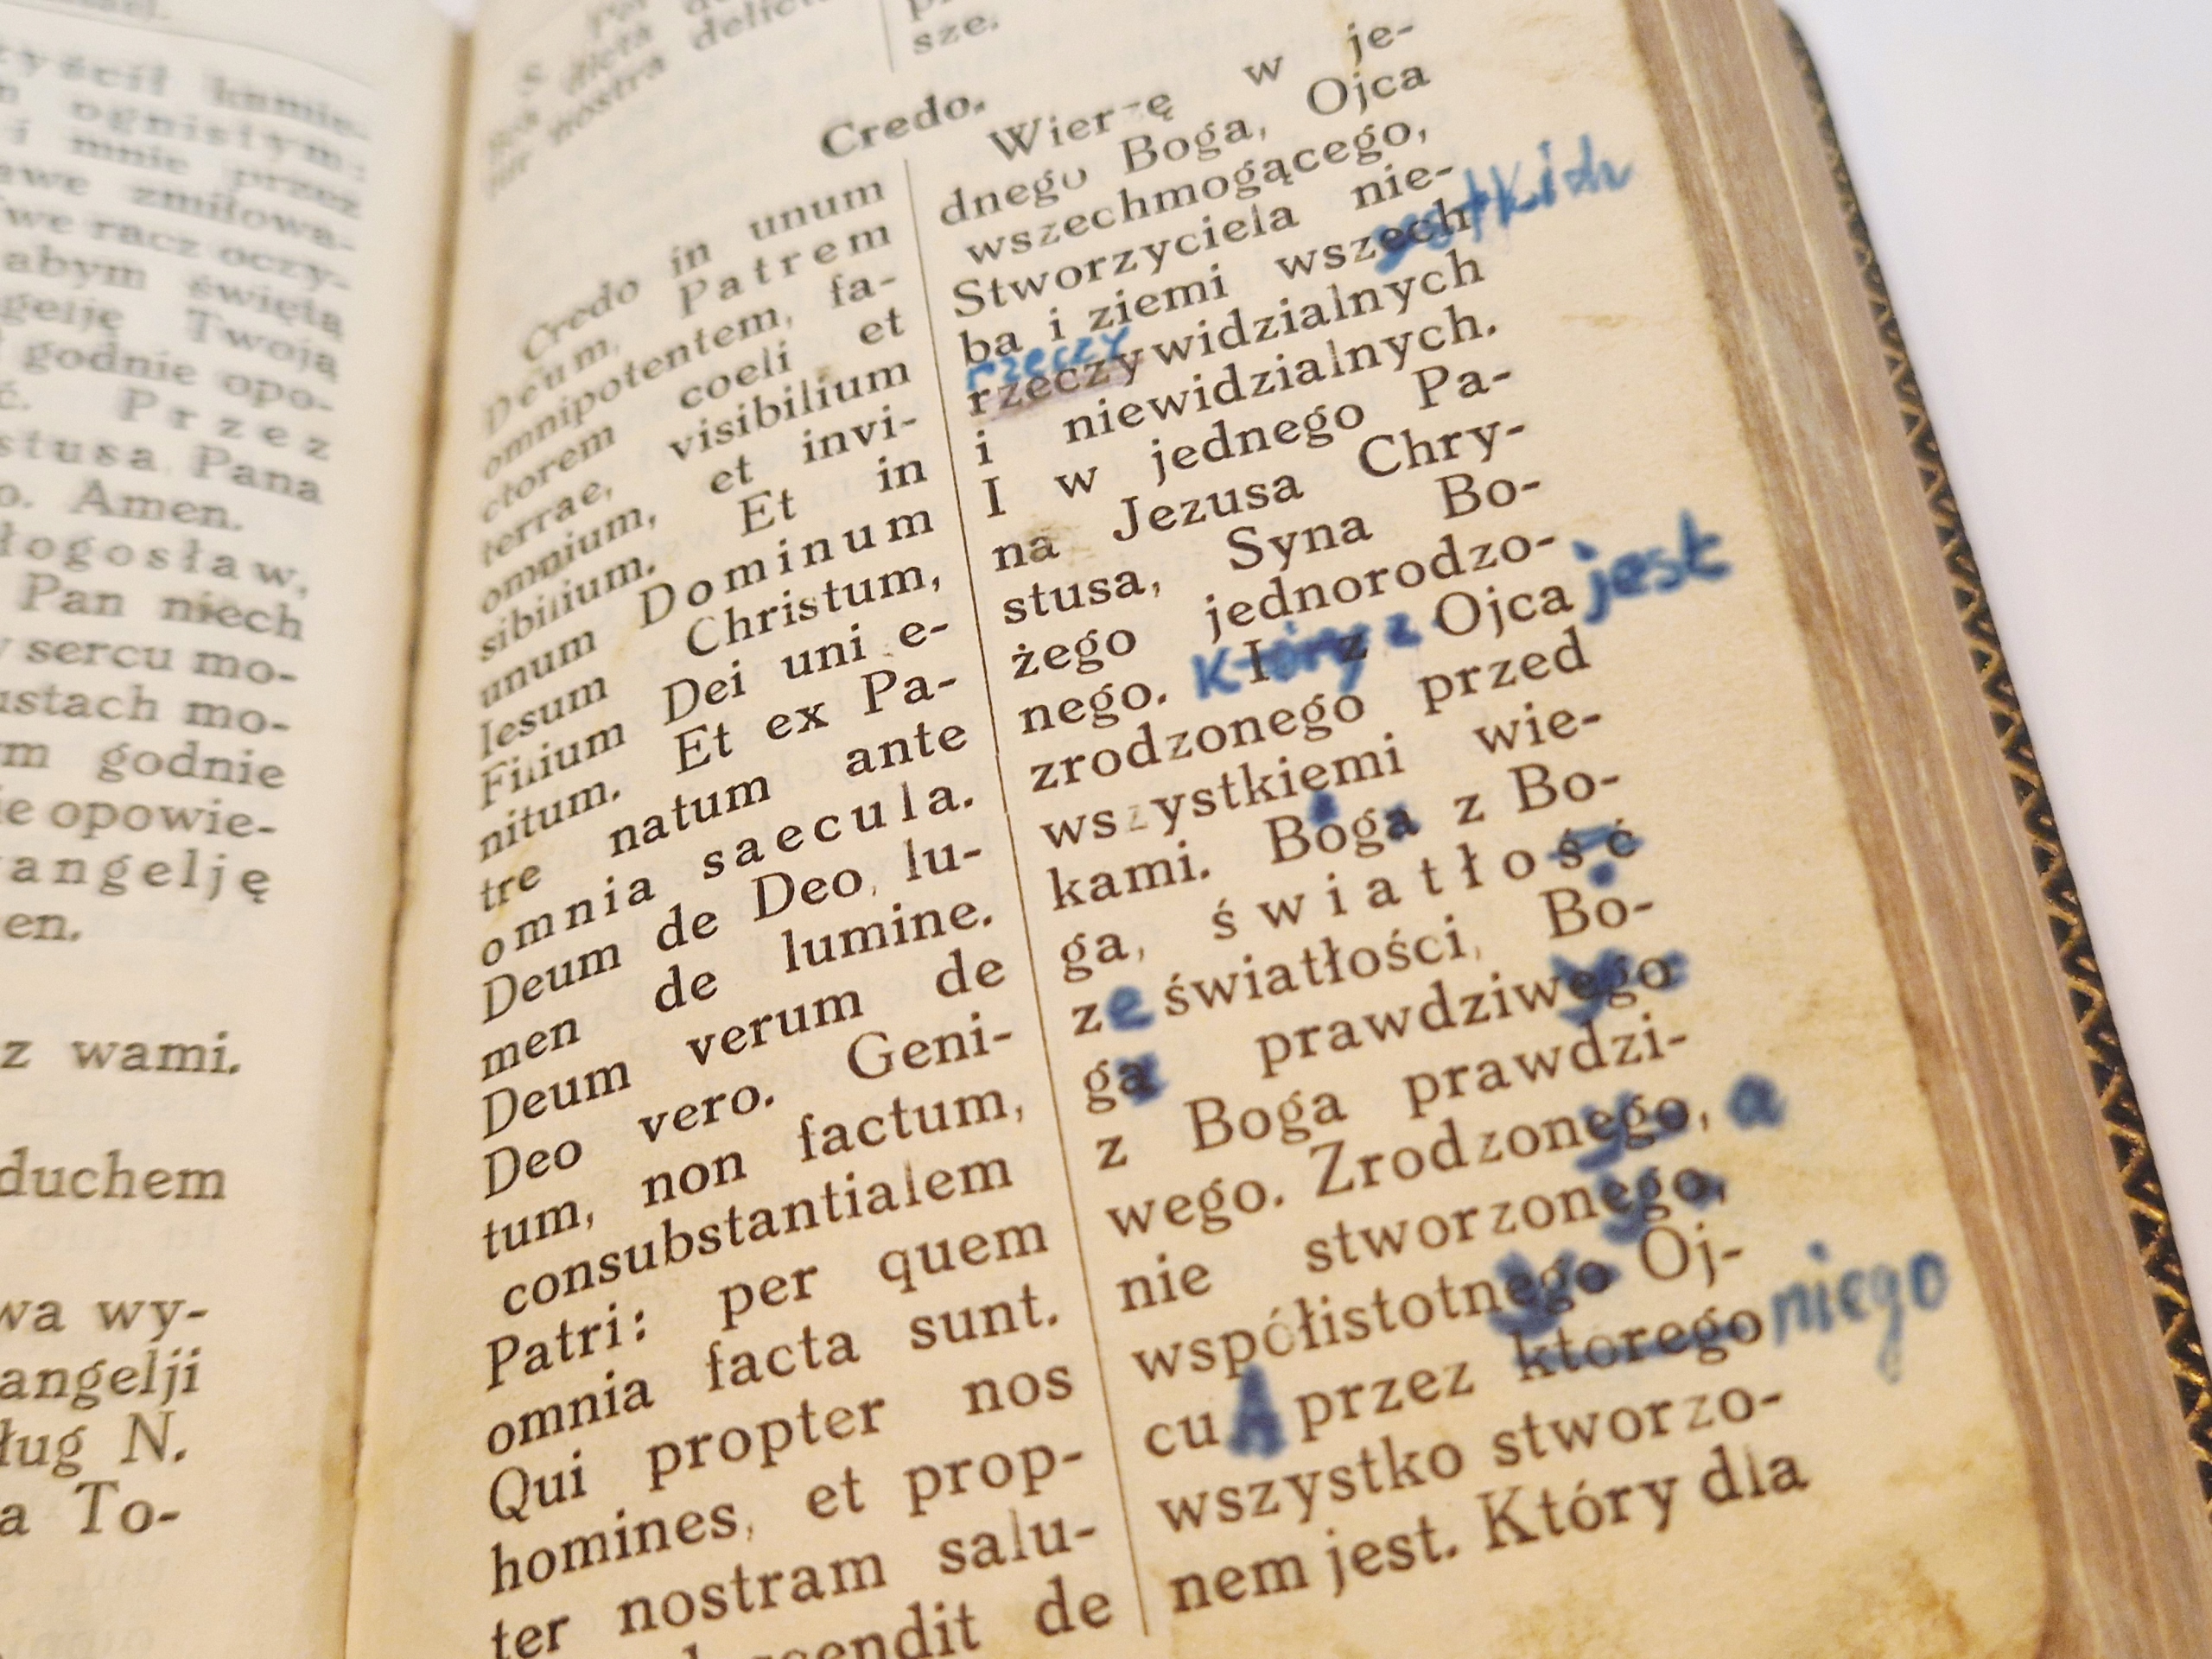 zyścił kamie-
ognistym:
i mnie przez
zmiłowa-
we racz oczy-
abym świętą
gelję Twoją
godnie opo-
ć. Przez
stusa Pana
o. Amen.
łogosław,
Pan niech
sercu mo-
ustach mo-
m godnie
ie opowie-
angelję
en.
z wami.
duchem
wa wy-
angelji
ług N.
a To-
S.
dicta
nostra delicta
sze.
Credo.
Credo in unum
Deum, Patrem
omnipotentem, fa-
ctorem coeli et
terrae, visibilium
omnium, et invi-
sibilium. Et in
unum Dominum
Iesum Christum,
Filium Dei uni e-
nitum. Et ex Pa-
tre natum ante
omnia saecula.
Deum de Deo, lu-
men de lumine.
Deum verum de
Deo vero. Geni-
tum, non factum,
consubstantialem
Patri: per quem
omnia facta sunt.
Qui propter nos
homines, et prop-
ter nostram salu-
scendit de
Wierzę w je-
dnego Boga, Ojca
wszechmogącego,
Stworzyciela nie-
ba i ziemi wszech ystkich
rzeczy
rzeczy widzialnych
i niewidzialnych.
I w jednego Pa-
na Jezusa Chry-
stusa, Syna Bo-
żego jednorodzo-
nego. I z Który z Ojca jest
zrodzonego przed
wszystkiemi wie-
kami. Boga z Bo-
ga, światłość
ze światłości, Bo-
ga prawdziwego
z Boga prawdzi-
wego. Zrodzonego, a
nie stworzonego,
współistotnego Oj-
cu A przez ktorego niego
wszystko stworzo-
nem jest. Który dla